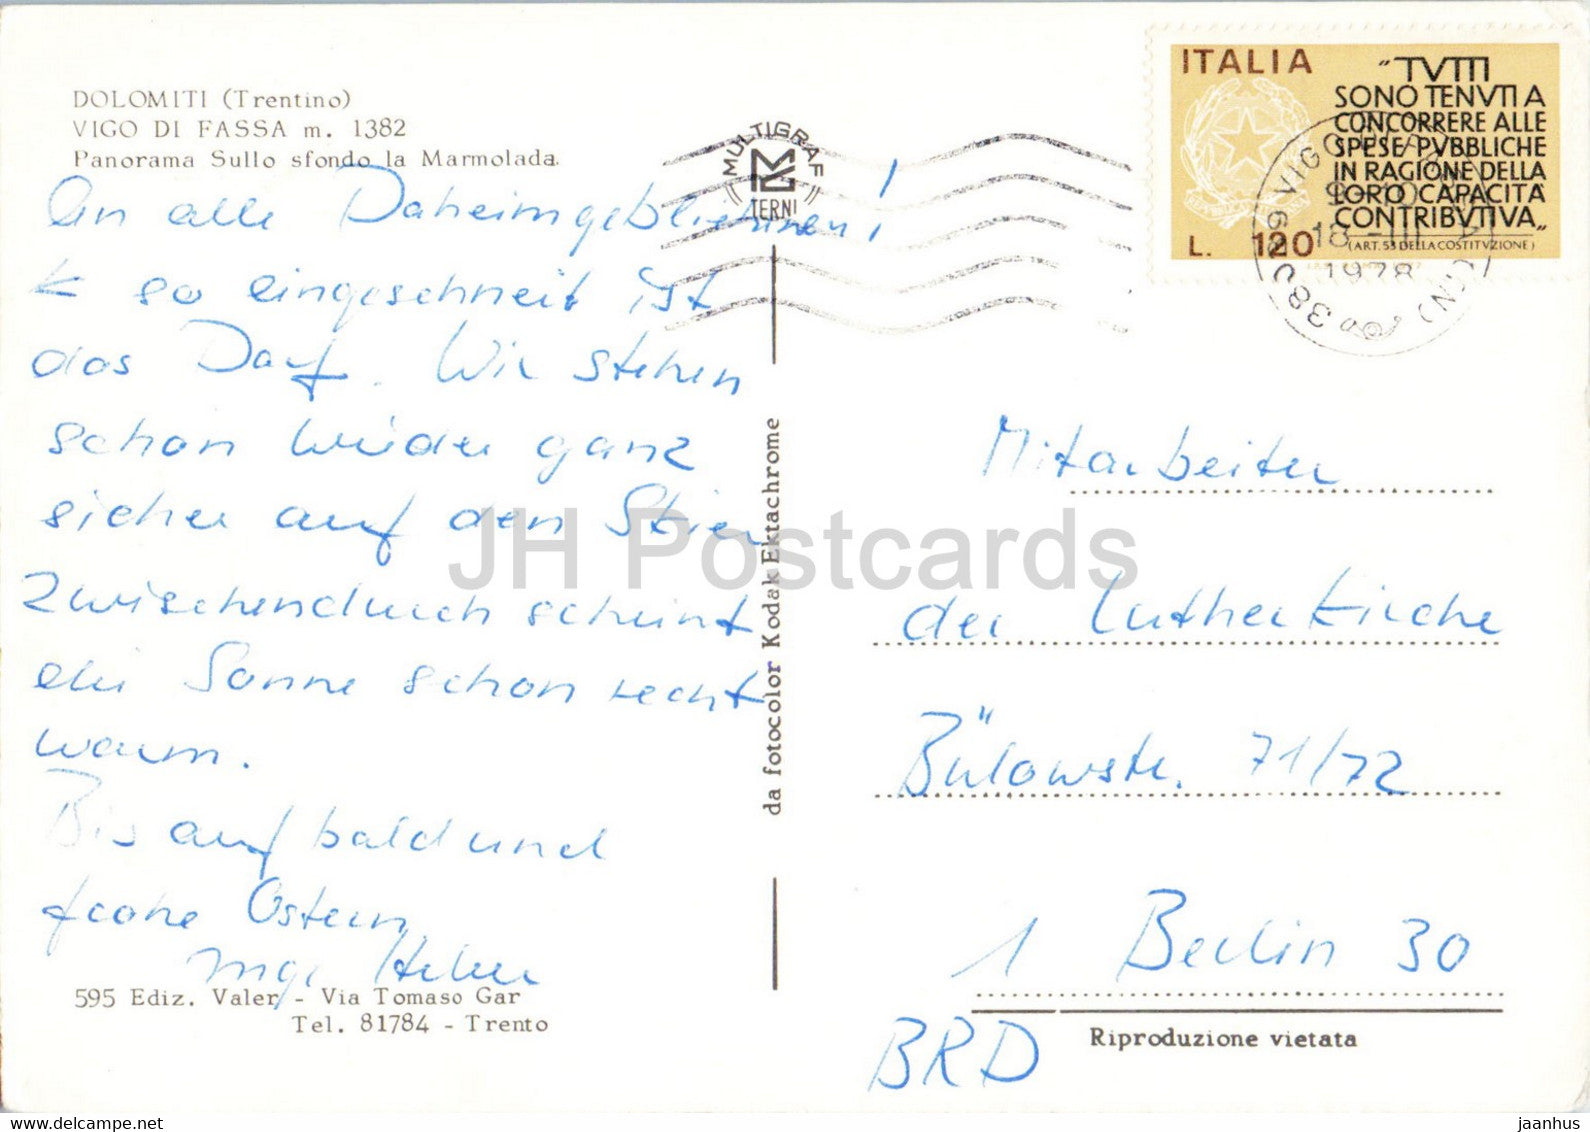 DOLOMITI (Trentino)
VIGO DI FASSA m. 1382
Panorama Sullo sfondo la Marmolada.
An alle Daheimgebliebenen!
so eingeschneit ist
das Dorf. Wir stehen
schon wieder ganz
sicher auf den Skiern
zwischendurch scheint
die Sonne schon recht
warm.
Bis auf bald und
frohe Ostern
Inge
595 Ediz. Valer - Via Tomaso Gar
Tel. 81784 - Trento
MULTIGRAF
TERNI
da fotocolor Kodak Ektachrome
ITALIA
"TVTTI
SONO TENVTI A
CONCORRERE ALLE
SPESE PVBBLICHE
IN RAGIONE DELLA
LORO CAPACITÀ
CONTRIBVTIVA„
(ART. 53 DELLA COSTITVZIONE)
L. 120
18 -III
1978
Mitarbeiter
der Lutherkirche
Bülowstr. 71/72
1 Berlin 30
BRD
Riproduzione vietata
JH Postcards
jaanhus - www.delcampe.net